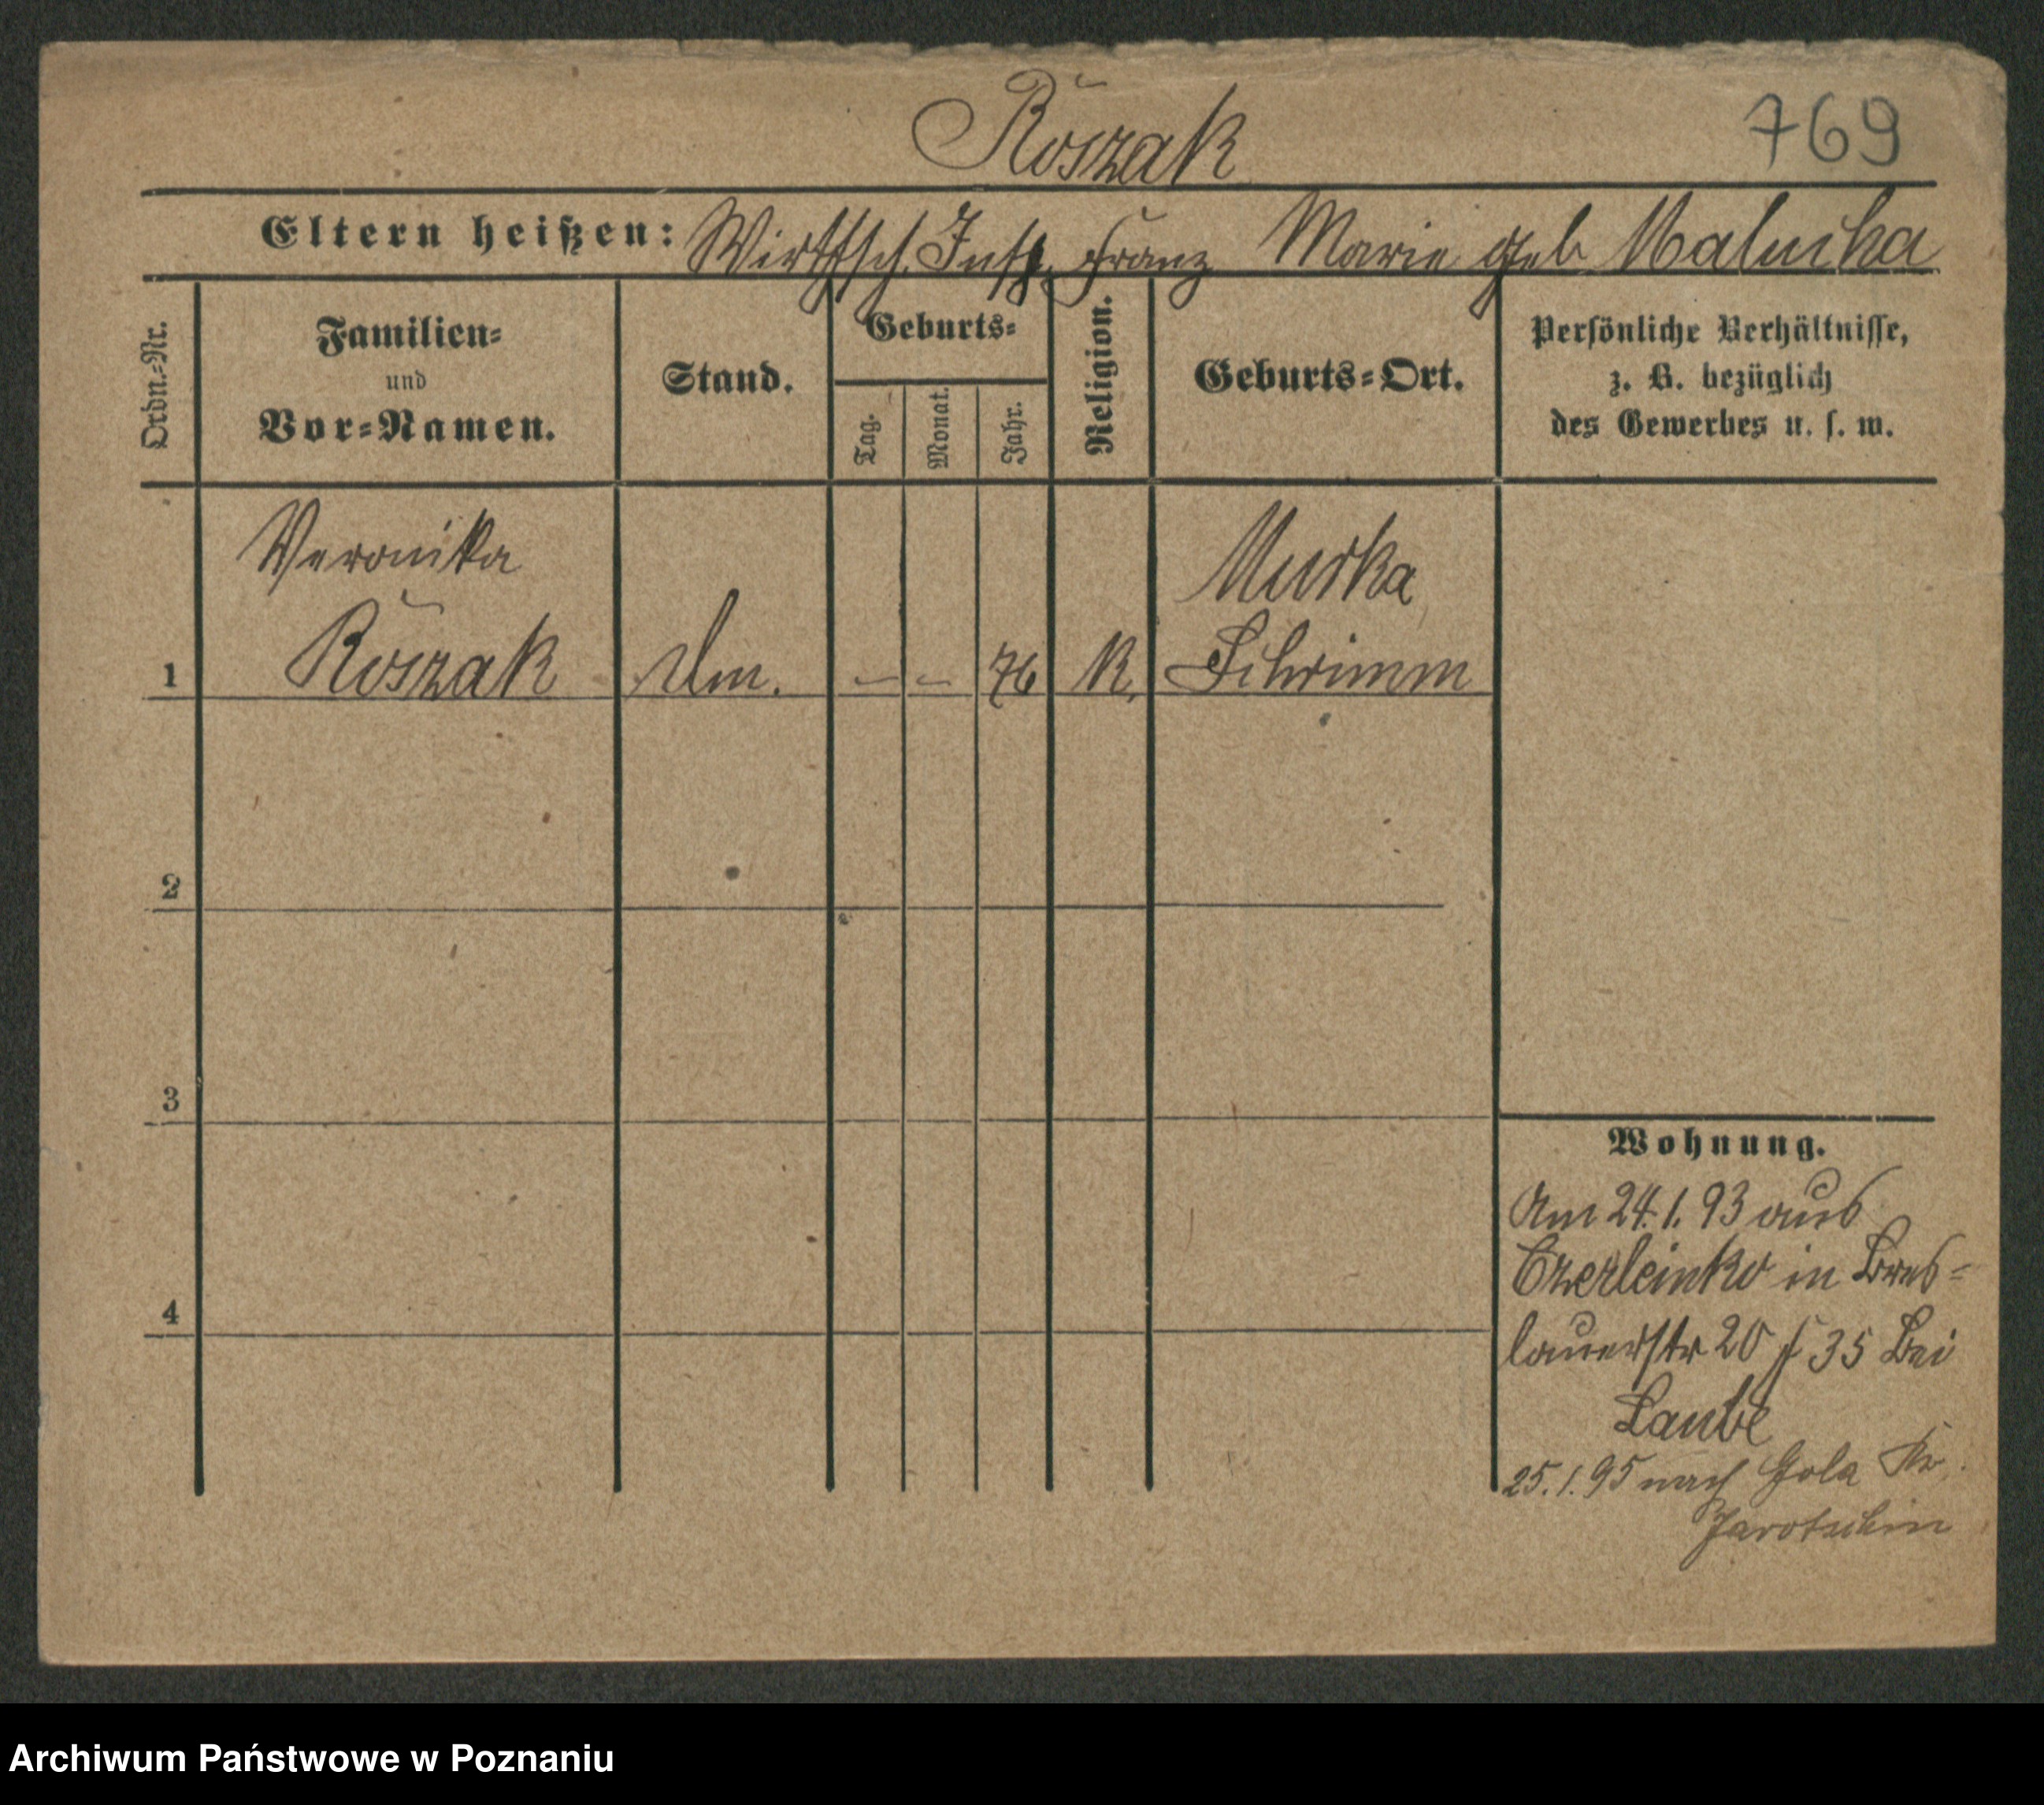 Rŏszak
769
Eltern heißen: Wirthsch. Insp. Franz Marie geb Malucha
Ordn.-Nr.
Familien-
und
Vor-Namen.
Stand.
Geburts-
Tag.
Monat.
Jahr.
Religion.
Geburts-Ort.
Persönliche Verhältnisse,
z. B. bezüglich
des Gewerbes u. s. w.
Veronika
Murka
1 Rŏszak — — 76 K. Schrimm
2
3
4
Wohnung.
Am 24.1.93 aus
Czerleinko in Bres-
lauerstr 20 35 bei
Laube
25.1.95 nach Gola Kr.
Jarotschin
Archiwum Państwowe w Poznaniu